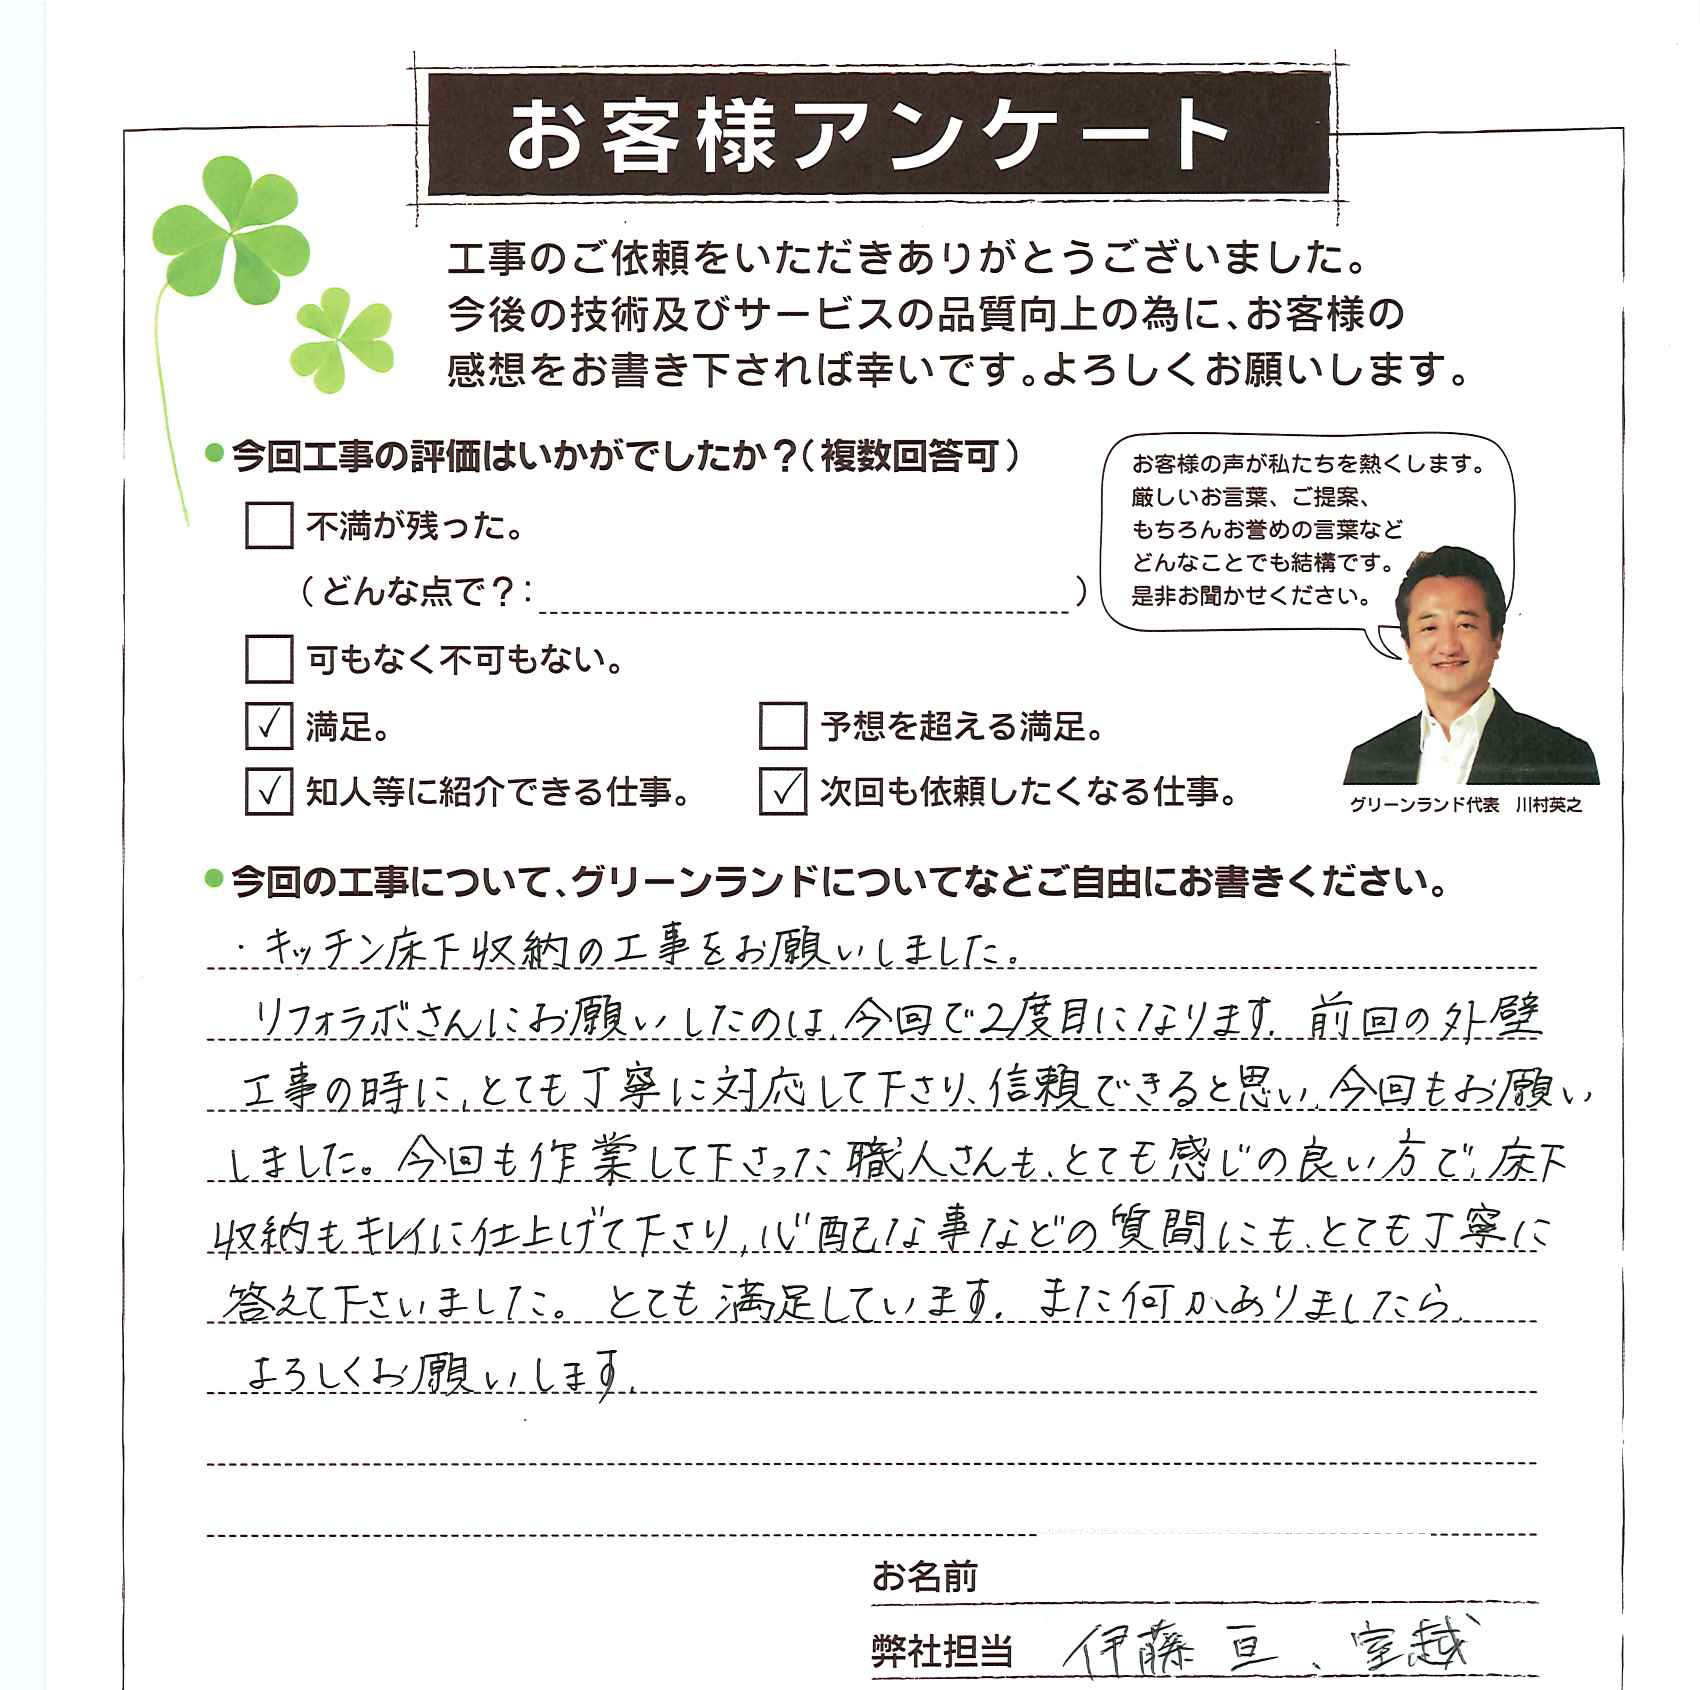 お客様アンケート
工事のご依頼をいただきありがとうございました。
今後の技術及びサービスの品質向上の為に、お客様の
感想をお書き下されば幸いです。よろしくお願いします。
●今回工事の評価はいかがでしたか？（複数回答可）
お客様の声が私たちを熱くします。
厳しいお言葉、ご提案、
もちろんお誉めの言葉など
どんなことでも結構です。
是非お聞かせください。
□ 不満が残った。
（どんな点で？： ）
□ 可もなく不可もない。
☑ 満足。
□ 予想を超える満足。
☑ 知人等に紹介できる仕事。
☑ 次回も依頼したくなる仕事。
グリーンランド代表 川村英之
●今回の工事について、グリーンランドについてなどご自由にお書きください。
・キッチン床下収納の工事をお願いしました。
リフォラボさんにお願いしたのは、今回で2度目になります。前回の外壁
工事の時に、とても丁寧に対応して下さり、信頼できると思い、今回もお願い
しました。今回も作業して下さった職人さんも、とても感じの良い方で、床下
収納もキレイに仕上げて下さり、心配な事などの質問にも、とても丁寧に
答えて下さいました。とても満足しています。また何かありましたら、
よろしくお願いします。
お名前
弊社担当 伊藤 亘、室越